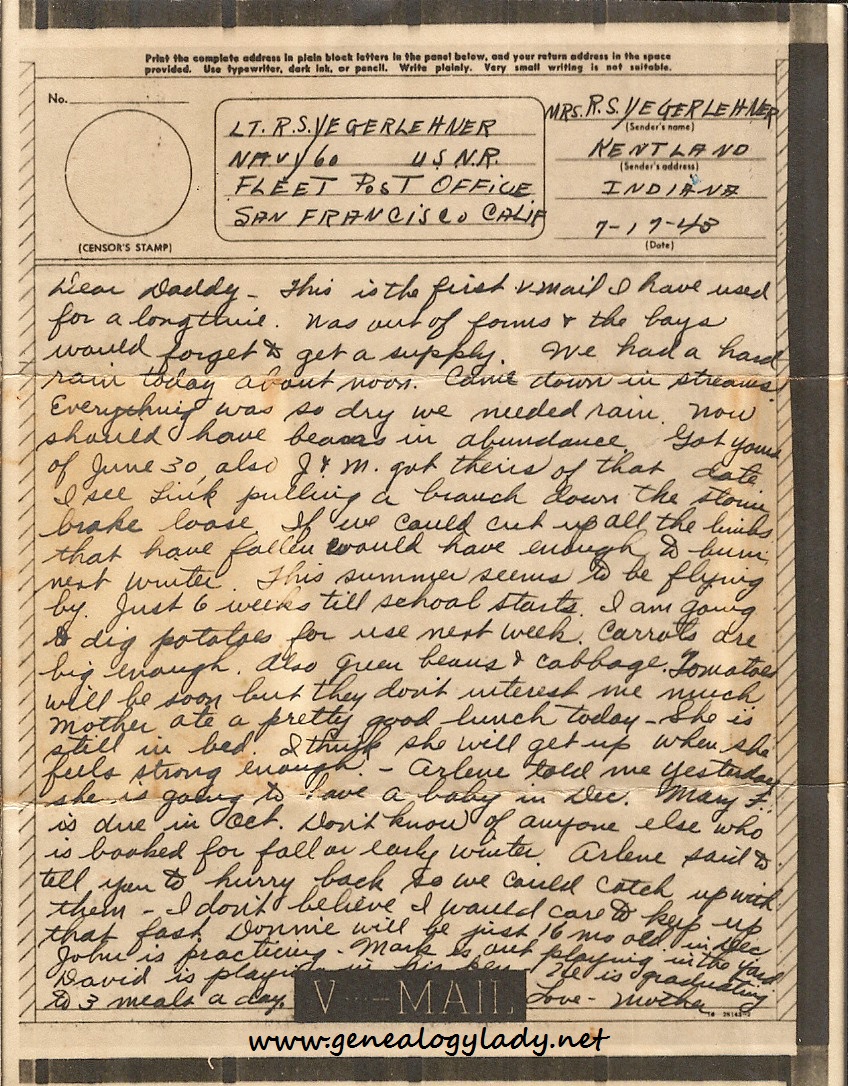 Print the complete address in plain block letters in the panel below, and your return address in the space
provided. Use typewriter, dark ink, or pencil. Write plainly. Very small writing is not suitable.
No.
(CENSOR'S STAMP)
LT. R.S. YEGERLEHNER
NAVY 60 U S N.R.
FLEET POST OFFICE
SAN FRANCISCO CALIF
MRS. R.S. YEGERLEHNER
(Sender's name)
KENTLAND
(Sender's address)
INDIANA
7-17-43
(Date)
Dear Daddy - This is the first v-mail I have used
for a long time. Was out of forms & the boys
would forget to get a supply. We had a hard
rain today about noon. Came down in streams.
Everything was so dry we needed rain. Now
should have beans in abundance. Got yours
of June 30, also J. & M. got theirs of that date
I see Tink pulling a branch down the storm
brake loose. If we could cut up all the limbs
that have fallen would have enough to burn
next winter. This summer seems to be flying
by. Just 6 weeks till school starts. I am going
to dig potatoes for use next week. Carrots are
big enough. Also green beans & cabbage. Tomatoes
will be soon but they don't interest me much
Mother ate a pretty good lunch today - She is
still in bed. I think she will get up when she
feels strong enough. - Arlene told me yesterday
she is going to have a baby in Dec. Mary F.
is due in Oct. Don't know of anyone else who
is booked for fall or early winter. Arlene said to
tell you to hurry back so we could catch up with
them - I don't believe I would care to keep up
that fast. Donnie will be just 16 mo old in Dec
John is practicing - Mark is out playing in the yard
David is playing in his pen. He is graduating
to 3 meals a day. Love - Mother
V···—MAIL
www.genealogylady.net